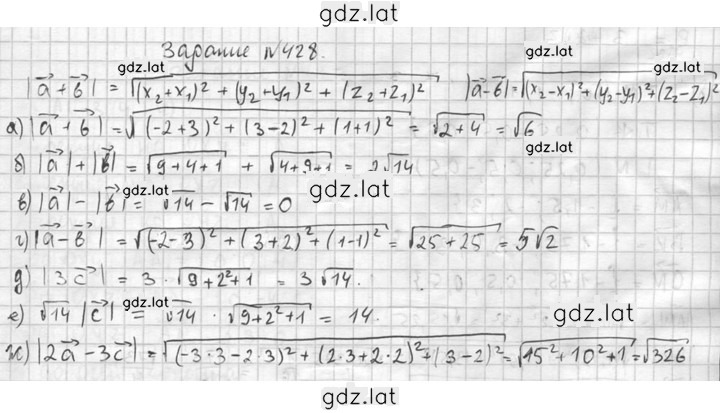 gdz.lat
Задание №428.
gdz.lat gdz.lat gdz.lat
|a⃗ + b⃗| = √((x₂+x₁)² + (y₂+y₁)² + (z₂+z₁)²) |a⃗-b⃗| = √((x₂-x₁)²+(y₂-y₁)²+(z₂-z₁)²)
а) |a⃗ + b⃗| = √((-2+3)² + (3-2)² + (1+1)²) = √(2+4) = √6
gdz.lat
б) |a⃗| + |b⃗| = √(9+4+1) + √(4+9+1) = 2√14
gdz.lat gdz.lat
в) |a⃗| - |b⃗| = √14 - √14 = 0
г) |a⃗ - b⃗| = √((-2-3)² + (3+2)² + (1-1)²) = √(25+25) = 5√2
д) |3c⃗| = 3 · √(9+2²+1) = 3√14.
gdz.lat gdz.lat
е) √14 |c⃗| = √14 · √(9+2²+1) = 14.
ж) |2a⃗ - 3c⃗| = √((-3·3-2·3)² + (2·3+2·2)² + (3-2)²) = √(15²+10²+1) = √326
gdz.lat gdz.lat
gdz.lat